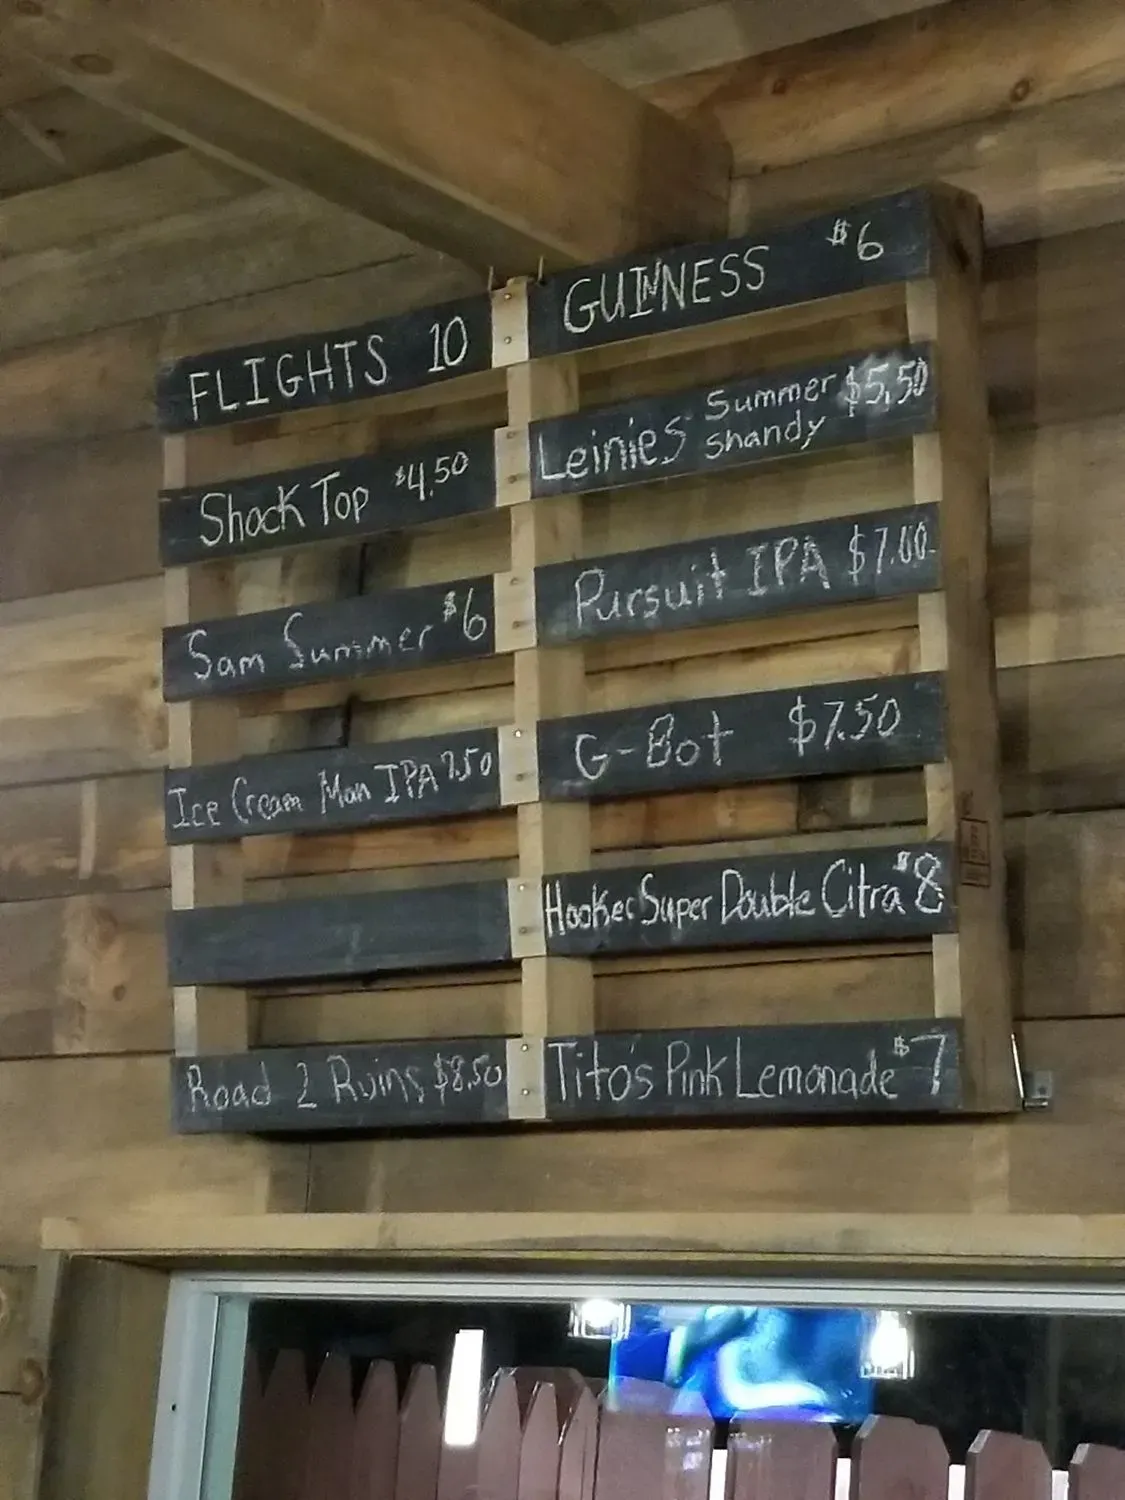 FLIGHTS 10
Shock Top $4.50
Sam Summer $6
Ice Cream Man IPA 7.50
Road 2 Ruins $8.50
GUINNESS $6
Leinies Summer Shandy $5.50
Pursuit IPA $7.00
G-Bot $7.50
Hooker Super Double Citra $8
Tito's Pink Lemonade $7